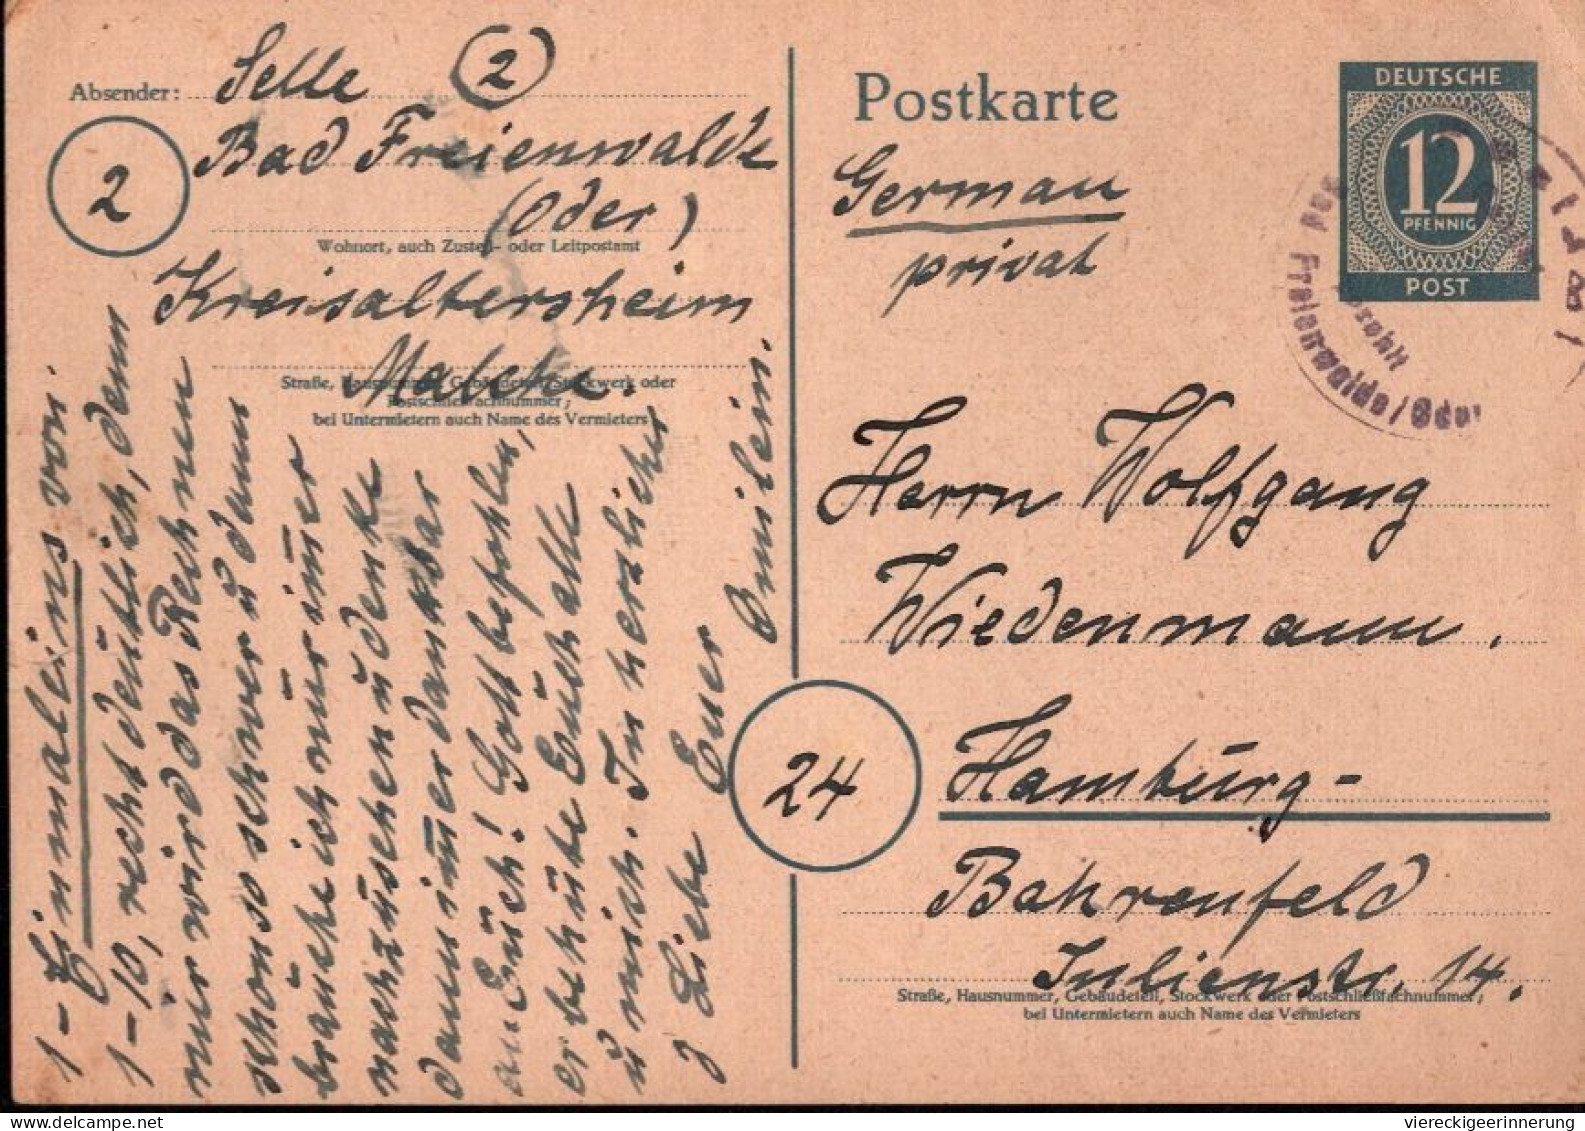 Absender: Selle (2)
2
Bad Freienwalde
(Oder)
Wohnort, auch Zustell- oder Leitpostamt
Kreisaltersheim
Malche.
Straße, Hausnummer, Gebäudeteil, Stockwerk oder
Postschließfachnummer;
bei Untermietern auch Name des Vermieters
1-Einmaleins vor.
1-10, recht deutlich, denn
mir wird das Rechnen
schon so schwer u dann
brauche ich nur immer
nachzusehen u denke
dann immer dankbar
an Euch! Gott befohlen,
er behüte Euch alle
u mich. In herzlicher
Liebe Euer
Omilein.
Postkarte
German
privat
DEUTSCHE
12
PFENNIG
POST
bezahlt
Freienwalde/Oder
Herrn Wolfgang
Wiedenmann.
24
Hamburg-
Bahrenfeld
Julienstr. 14.
Straße, Hausnummer, Gebäudeteil, Stockwerk oder Postschließfachnummer;
bei Untermietern auch Name des Vermieters
viereckigeerinnerung